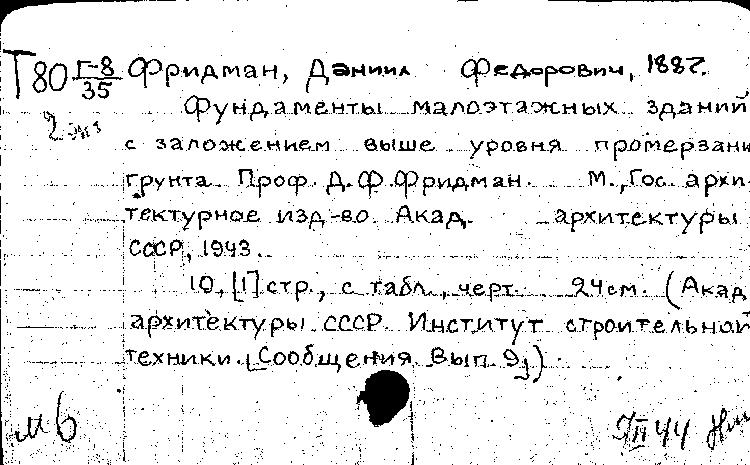 Т80 Г-8/35 Фридман, Даниил Федорович, 1887.
2 экз
Фундаменты малоэтажных зданий
с заложением выше уровня промерзани
грунта. Проф. Д.Ф. Фридман. М., Гос. архи-
тектурное изд-во Акад. архитектуры
СССР, 1943.
10, [1] стр., с табл., черт. 24 см. (Акад.
архитектуры СССР. Институт строительной
техники. [Сообщения. Вып. 9])
М6